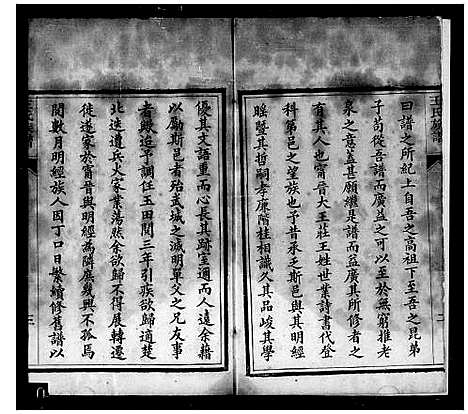 王氏族譜
曰譜之所紀上自吾之高祖下至吾之昆弟
千苟從吾譜而廣益之可以至於無窮推老
泉之意蓋甚願繼是譜而益廣其所修者之
有其人也甯晉大王莊王姓世業詩書代登
科第邑之望族也予昔承乏斯邑與其明經
暄暨其哲嗣孝廉階桂相識久其品峻其學
優其文語重而心長其跡室邇而人遠余藉
以勵斯邑者殆武城之滅明單父之兄友事
者歟迨予調任玉田閱三年引疾欲歸適楚
北迭遺兵火家業蕩然余欲歸不得展轉遷
徙遂家於甯晉與明經為隣庶幾興不孤焉
閱數月明經族人因丁口日繁續修舊譜以
二
三